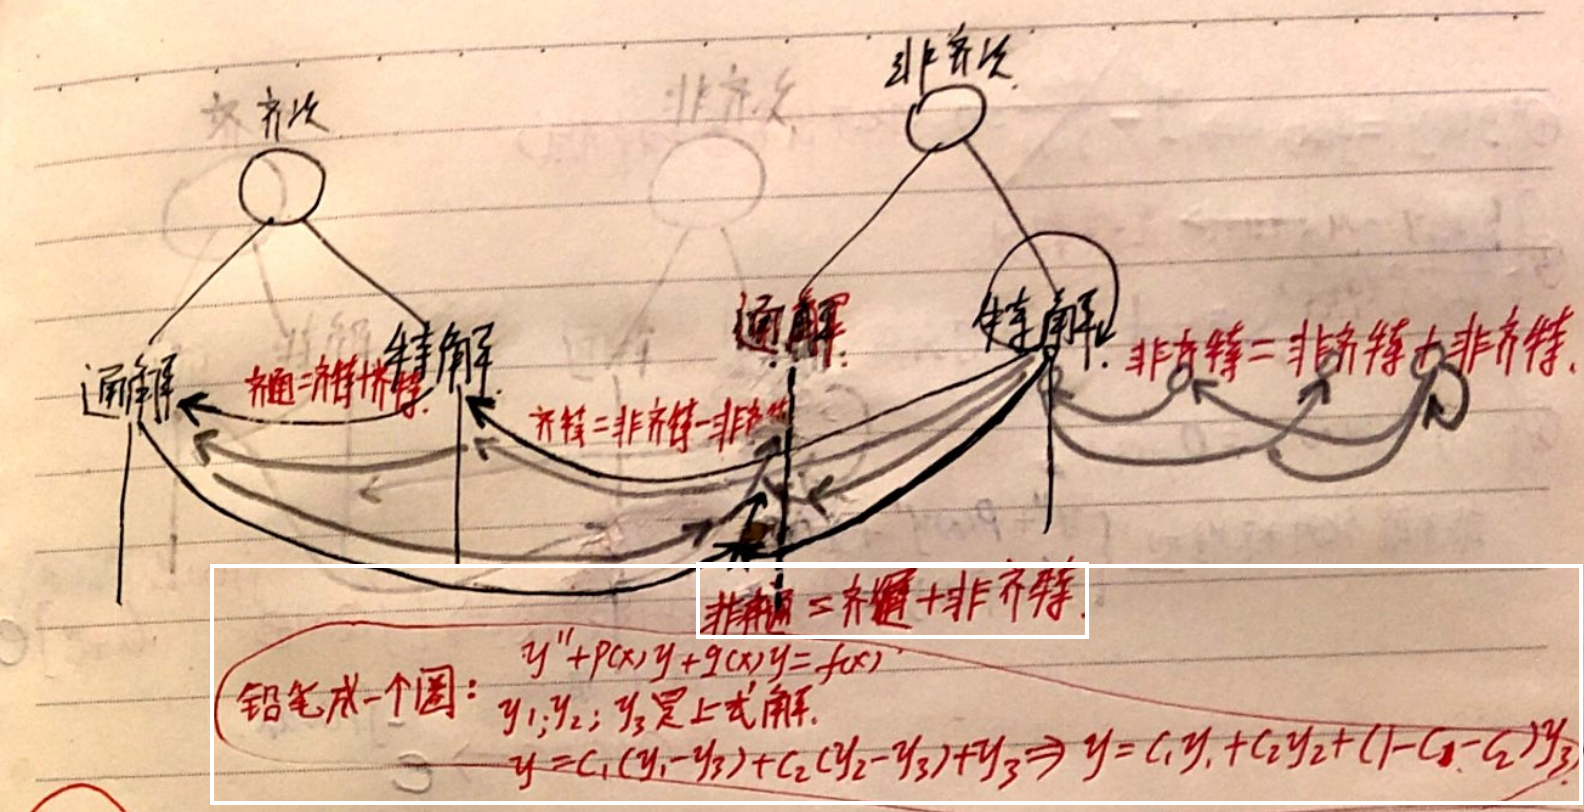 齐次
非齐次
通解
特解
通解
特解
齐通=齐特+齐特.
齐特=非齐特-非齐特
非齐特=非齐特+非齐特.
非齐通=齐通+非齐特.
铅笔成一个圈:
y"+p(x)y+q(x)y=f(x)
y1;y2;y3是上式解.
y=C1(y1-y3)+C2(y2-y3)+y3⇒y=C1y1+C2y2+(1-C1-C2)y3